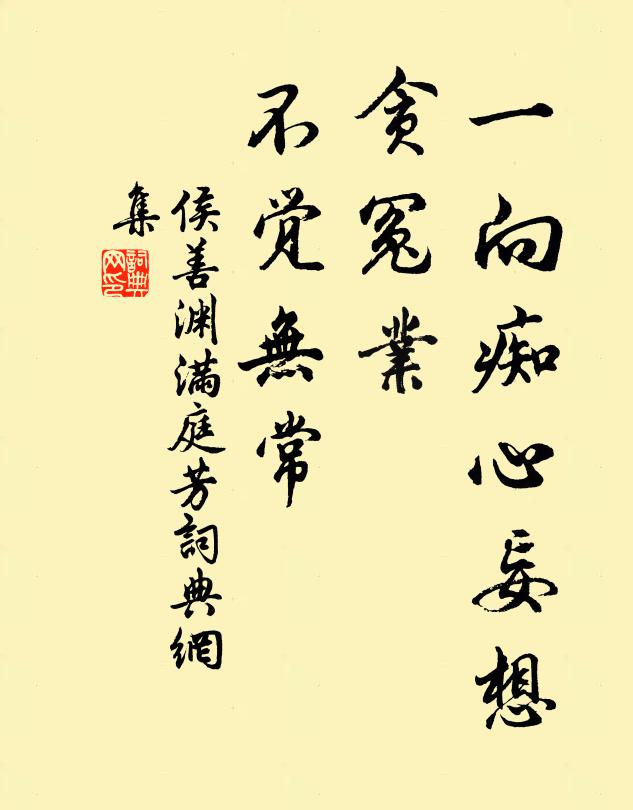 一向痴心妄想
貪冤業
不覚無常
侯善渊满庭芳詞典網
集
詞典
网印